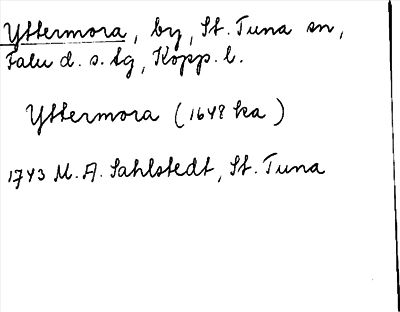 Yttermora, by, St. Tuna sn,
Falu d. s. lg, Kopp. l.
Yttermora (1648 ka)
1743 M. A. Sahlstedt, St. Tuna